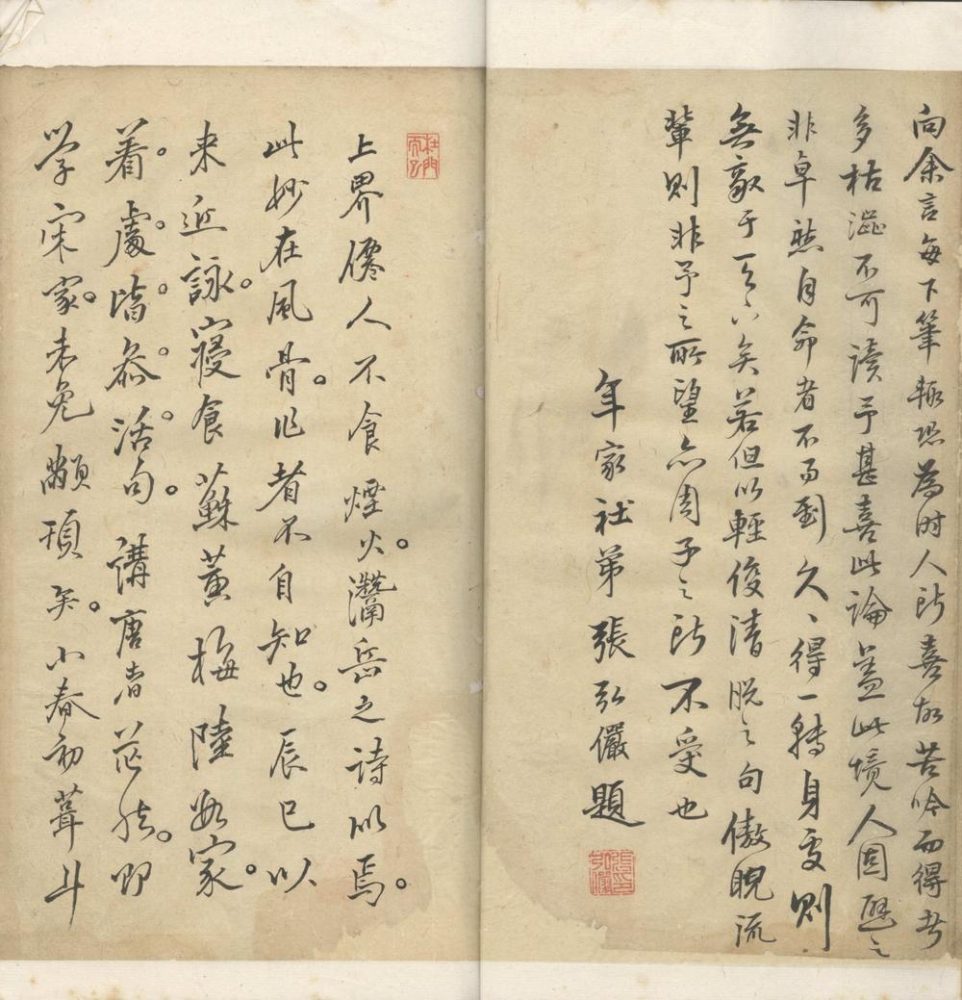 向余言每下筆輒恐為时人所喜故苦吟而得者
多枯澁不可讀予甚喜此論蓋此境人固歷之
非卓然自命者不易到久、得一轉身處則
無敵于天下矣若但以輕俊清脱之句傲睨流
輩則非予之所望亦周子之所不受也
年家社弟張弘儼題
上界僊人不食煙火。灊岳之詩似焉。
此妙在風骨。作者不自知也。辰巳以
来近詠。寝食蘇黃梅陸數家。
着。處。皆。叅。活。句。講唐者茫然。即
学宋家。未免顢頇矣。小春初葺斗